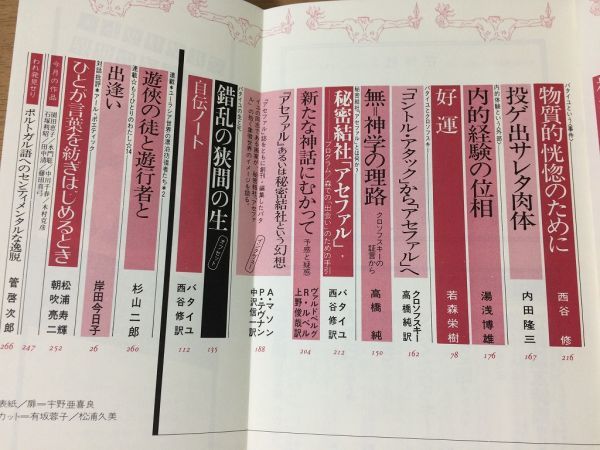 バタイユという事件
物質的恍惚のために
西谷 修
216
投ゲ出サレタ肉体
内田隆三
167
内的体験という外部
内的経験の位相
湯浅博雄
176
バタイユとクロソフスキー
好運
若森栄樹
78
「コントル・アタック」から「アセファル」へ
クロソフスキー
高橋純訳
162
秘密結社「アセファル」とは何か?
無–神学の理路
クロソフスキーの証言から
高橋 純
150
秘密結社「アセファル」
プログラム/森での〝出会い〟のための手引
バタイユ
西谷修訳
212
新たな神話にむかって
予感と疑惑
ヴァルドベルグ
R・ルベル
上野俊哉訳
204
「アセファル」あるいは秘密結社という幻想
A・マソン
P・テヴナン
中沢信一訳
188
錯乱の狭間の生
135
自伝ノート
バタイユ
西谷修訳
112
連載・ユーラシア世界の漂泊彷徨者たち*2
遊俠の徒と遊行者と
杉山二郎
260
連載☆もうひとりのわたし☆14
出逢い
岸田今日子
26
対話批評*アール・ポエティック
ひとが言葉を紡ぎはじめるとき
松浦寿輝
朝吹亮二
252
今月の作品
247
われ発見せり
ポルトガル語へのセンティメンタルな逸脱
管啓次郎
266
表紙/扉=宇野亜喜良
カット=有坂蓉子/松浦久美